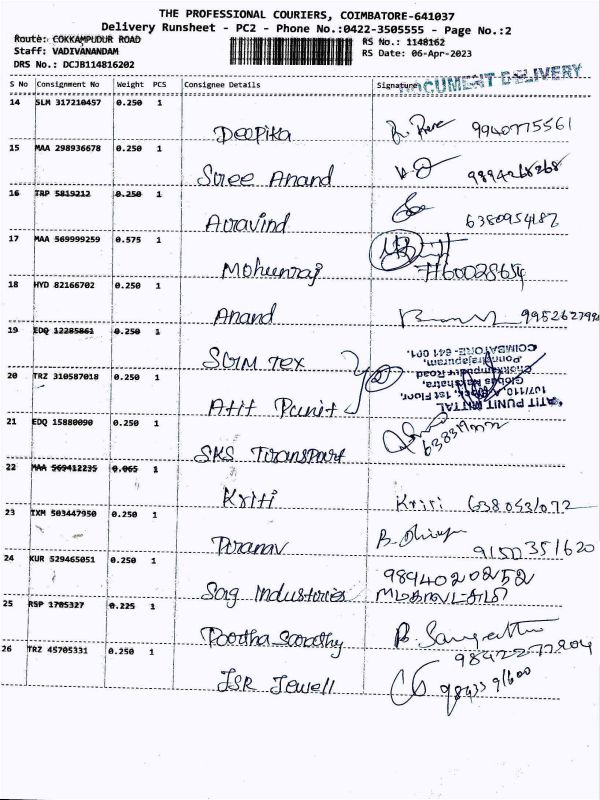 THE PROFESSIONAL COURIERS, COIMBATORE-641037
Delivery Runsheet - PC2 - Phone No.:0422-3505555 - Page No.:2
Route: COKKAMPUDUR ROAD
Staff: VADIVANANDAM
DRS No.: DCJB114816202
RS No.: 1148162
RS Date: 06-Apr-2023
DOCUMENT DELIVERY
S No Consignment No Weight PCS Consignee Details Signature
14 SLM 317210457 0.250 1
Deepika 9940775561
15 MAA 298936678 0.250 1
Sree Anand 9894268268
16 TRP 5819212 0.250 1
Aravind 6380954182
17 MAA 569999259 0.575 1
Mohunraj
18 HYD 82166702 0.250 1
Anand
19 EDQ 12285861 0.250 1
SGM Tex
20 TRZ 310587018 0.250 1
Atit Punit
ATIT PUNIT MITTAL
107/110, A Block, 1st Floor,
Chokkampudur Road
Ponnairajapuram,
COIMBATORE-641 001.
21 EDQ 15880090 0.250 1
SKS Transport
22 MAA 569412235 0.065 1
Kriti Kriti 6380531072
23 IXM 503447950 0.250 1
Pranav 9150351620
24 KUR 529465051 0.250 1
Sag Industries 9894020252
25 RSP 1705327 0.225 1
Partha Sarathy
26 TRZ 45705331 0.250 1
JSR Jewell